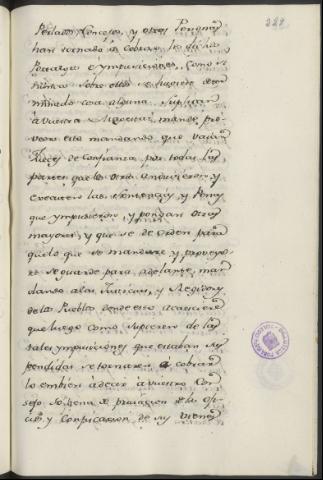 228
Perlados, Concejos, y otras Personas
han tornado a cobrar los dichos
Portazgos e ymposiciones, como si
nunca sobre ellos se huviera deter-
minado cosa alguna. Suplican
a vuestra Magestad mande pro-
veer ello mandando que vayan
Jueces de confianza por todas las
partes que los otros anduvieron, y
executen las sentencias, y Penas
que ympusieron, y pongan otras
mayores, y que se de orden para
que lo que se mandare, y proveye-
re se guarde para adelante, man-
dando a las Justicias, y Regidores
de los Pueblos donde esto acaeciere
que luego como supieren de las
tales ymposiciones que estaban sus-
pendidas se tornaren a cobrar
lo embien a decir a vuestro Con-
sejo so pena de privacion de los ofi-
cios, y confiscacion de sus vienes